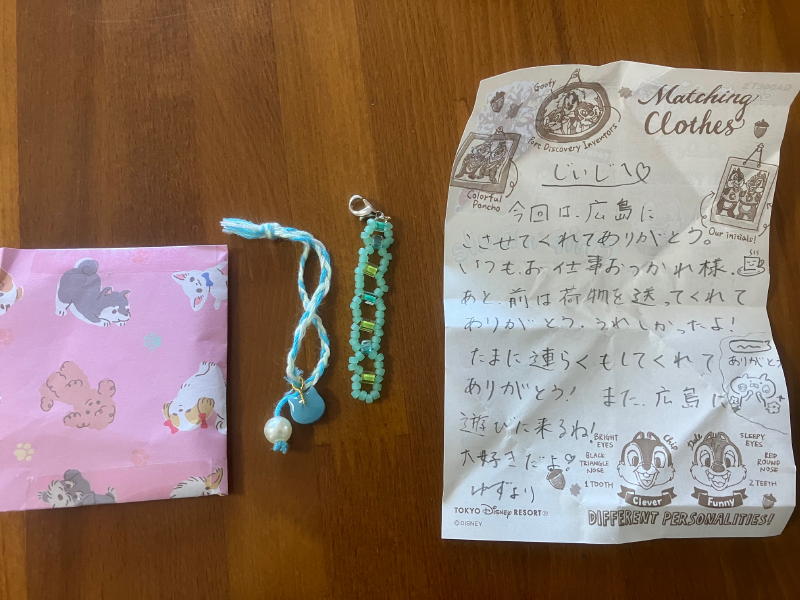 Goofy
Matching
Clothes
Port Discovery Inventors
Colorful
Poncho
Our initials!
じいじへ♡
今回は、広島に
こさせてくれてありがとう。
いつも、お仕事おつかれ様。
あと、前は荷物を送ってくれて
ありがとう。うれしかったよ!
たまに連らくもしてくれて
ありがとう! また、広島に
遊びに来るね!
大好きだよ♡
ゆずより
ありがとう
BRIGHT
EYES
BLACK
TRIANGLE
NOSE
1 TOOTH
Chip
Clever
Dale
Funny
SLEEPY
EYES
RED
ROUND
NOSE
2 TEETH
TOKYO DISNEY RESORT®
©DISNEY
DIFFERENT PERSONALITIES!